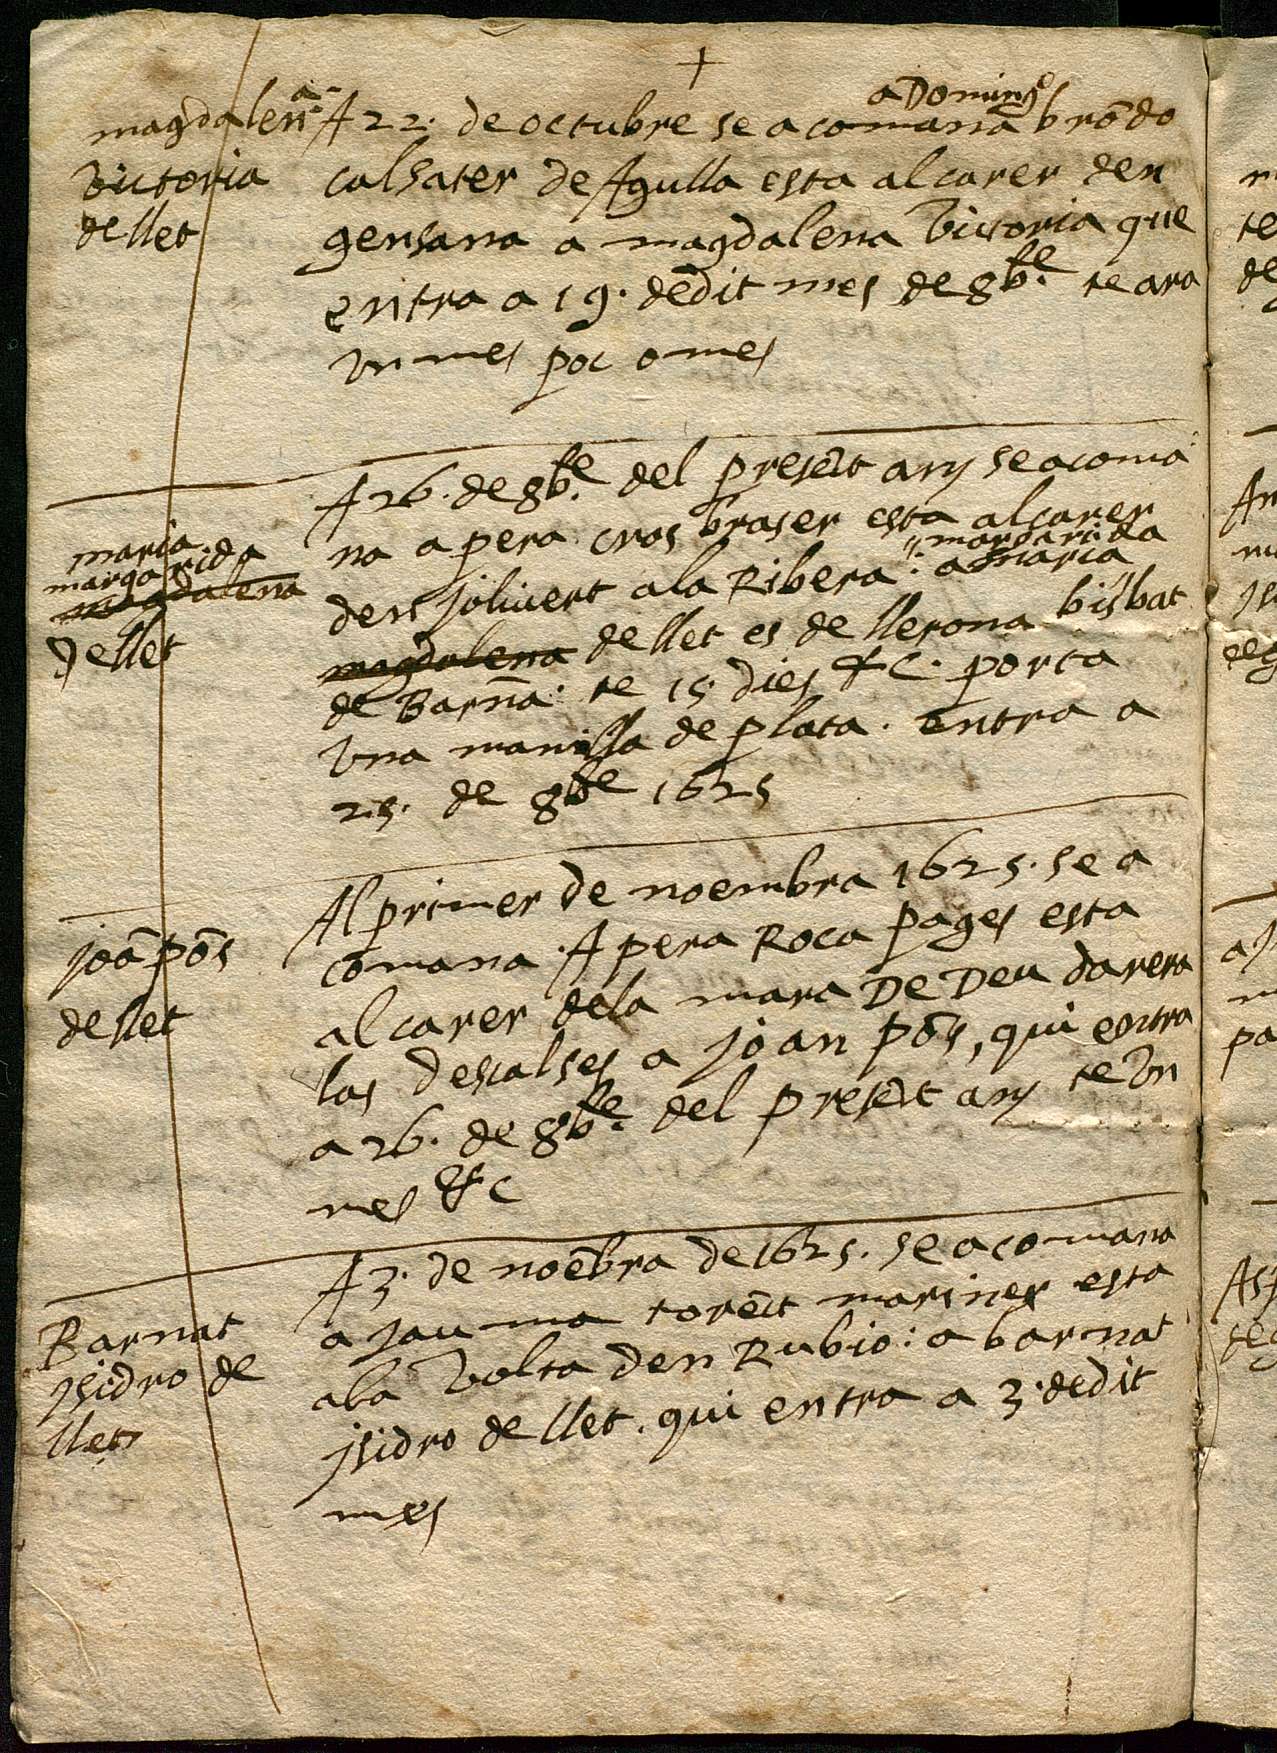 +
magdalena
victoria
de llet
A 22. de octubre se acomana a Domingo brõdo
calsater de Agulla esta al carer den
gensana a magdalena victoria que
entra a 19. de dit mes de 8bre te ara
un mes poc o mes
maria
margarida
magdalena
de llet
A 26. de 8bre del presẽt any se acoma
na a pera cros braser esta al carer
den jolivert a la Ribera: a maria margarida
magdalena de llet es de llerona bisbat
de Barña: te 15 dies &c. porta
una manilla de plata. entra a
25. de 8bre 1625
joã põs
de llet
Al primer de noembra 1625. se a
comana A pera Roca pages esta
al carer dela mara De Deu darera
las descalses a joan põs, qui entra
a 26. de 8bre del presẽt any te un
mes &c
Barnat
jsidro de
llet
A 3. de noẽbra de 1625. se acomana
a jauma torẽt mariner esta
ala volta den Rubio: a barnat
jsidro de llet. qui entra a 3. de dit
mes